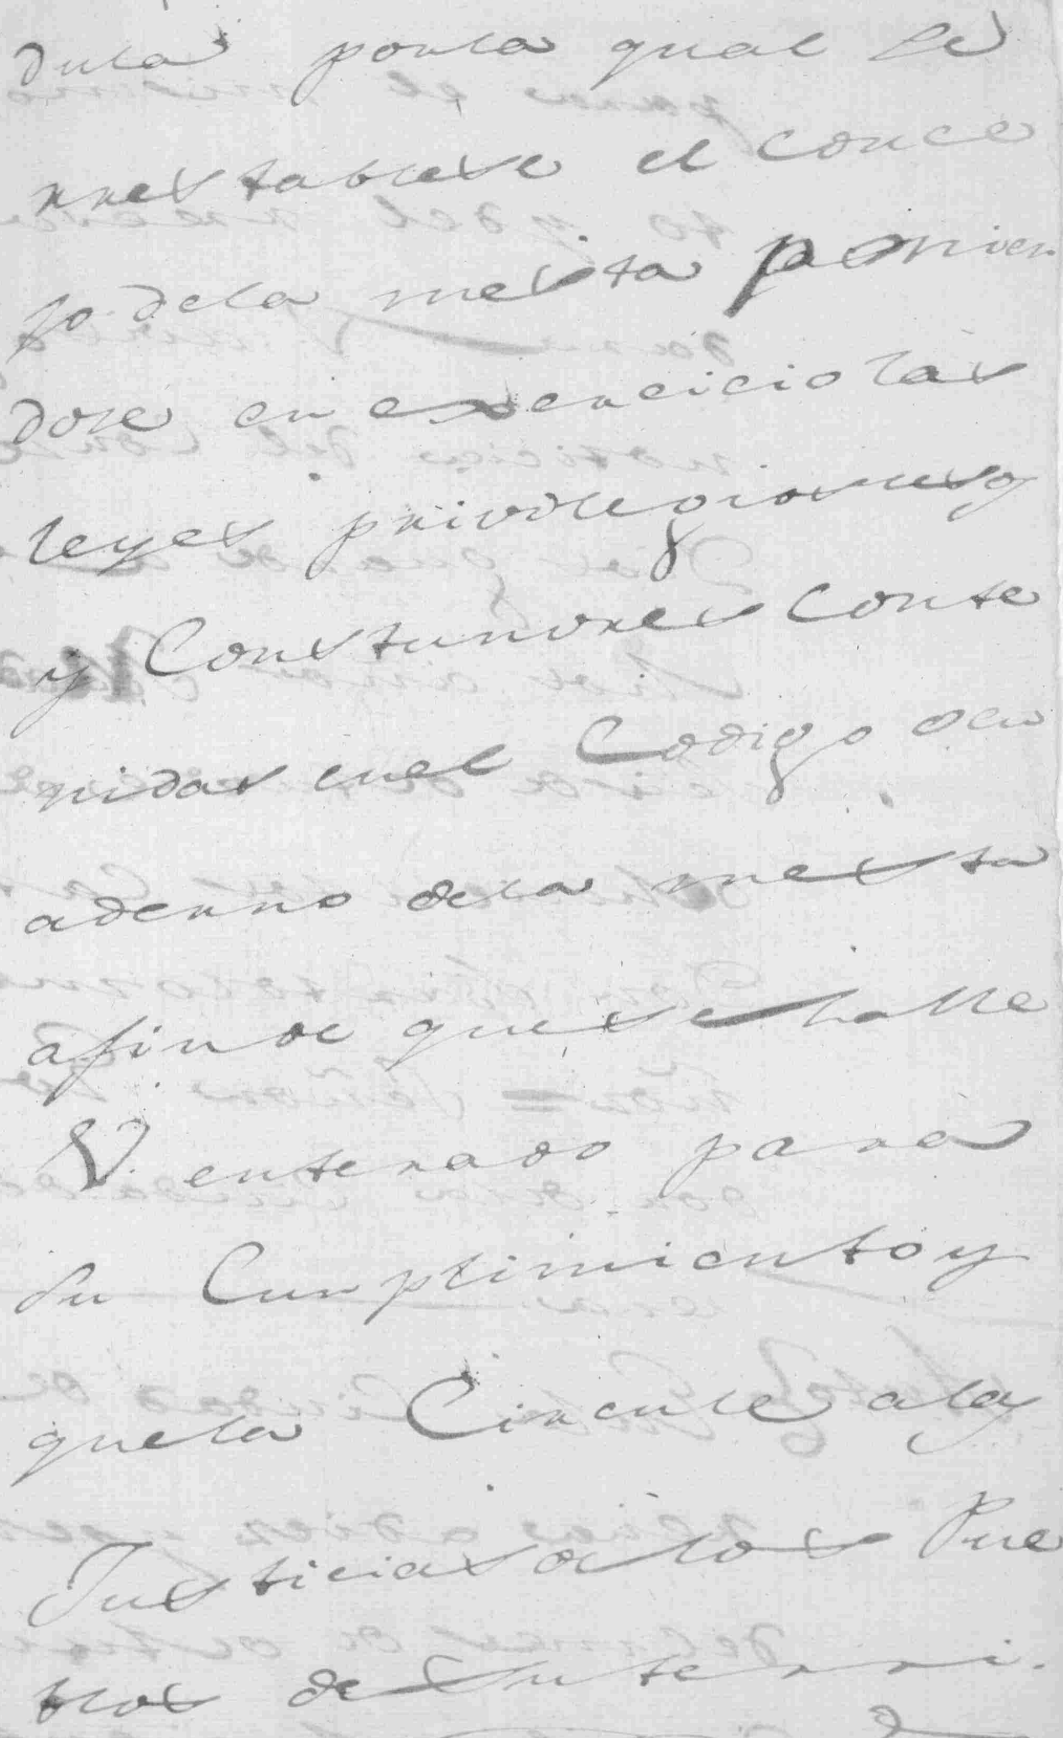 dula porla qual se
rrestablese el conce
jo dela mesta ponien
dose en exercicio las
leyes privilegios usos
y Constunvres Conte
nidas enel Codigo o cu
aderno dela mesta
afin de que se halle
V. enterado para
su Cunplimiento y
quela Circule alas
Justicias de los Pue
blos de su terri.